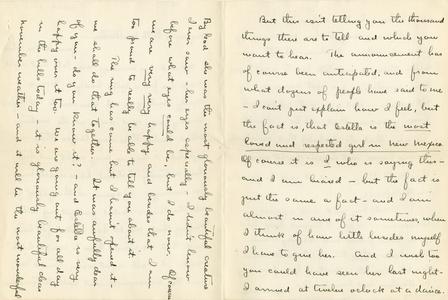 But this isn't telling you the thousand
things there are to tell and which you
want to hear. The announcement has
of course been anticipated, and from
what dozens of people have said to me
- I can't just explain how I feel, but
the fact is, that Estella is the most
loved and respected girl in New Mexico.
Of course it is I who is saying this -
and I am biased - but the fact is
just the same a fact - and I am
almost in awe of it sometimes, when
I think of how little besides myself
I have to give her. And I wish too
you could have seen her last night.
I arrived at twelve o'clock at a dance.
By God she was the most gloriously beautiful creature
I ever saw - her eyes especially - I didn't know
before what eyes could be, but I do now. Of course
we are very very happy and besides that I am
too proud to really be able to tell you about it.
The ring has come but I haven't opened it -
we shall do that together. It was awfully dear
of you - do you know it? - and Estella is very
happy over it too. We are going out for all day
in the hills today - it is gloriously beautiful clear
November weather - and it will be the most wonderful